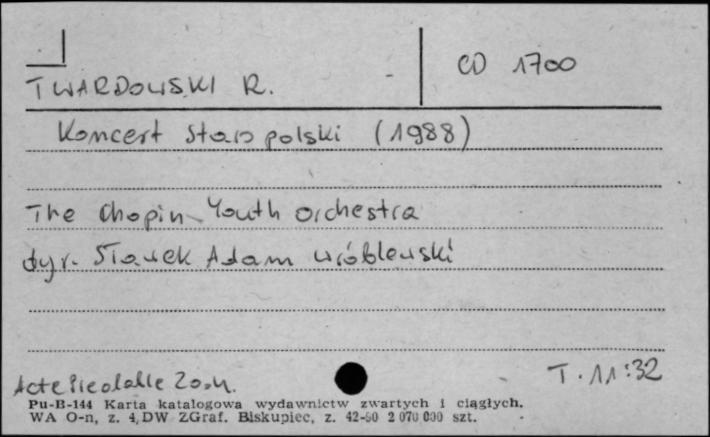 CD 1700
TWARDOWSKI R.
Koncert Staropolski (1988)
The Chopin Youth orchestra
dyr. Sławek Adam Wróblewski
T. 11:32
Acte Préalable
Pu-B-144 Karta katalogowa wydawnictw zwartych i ciągłych.
WA O-n, z. 4, DW ZGraf. Biskupiec, z. 42-80 2 070 000 szt.